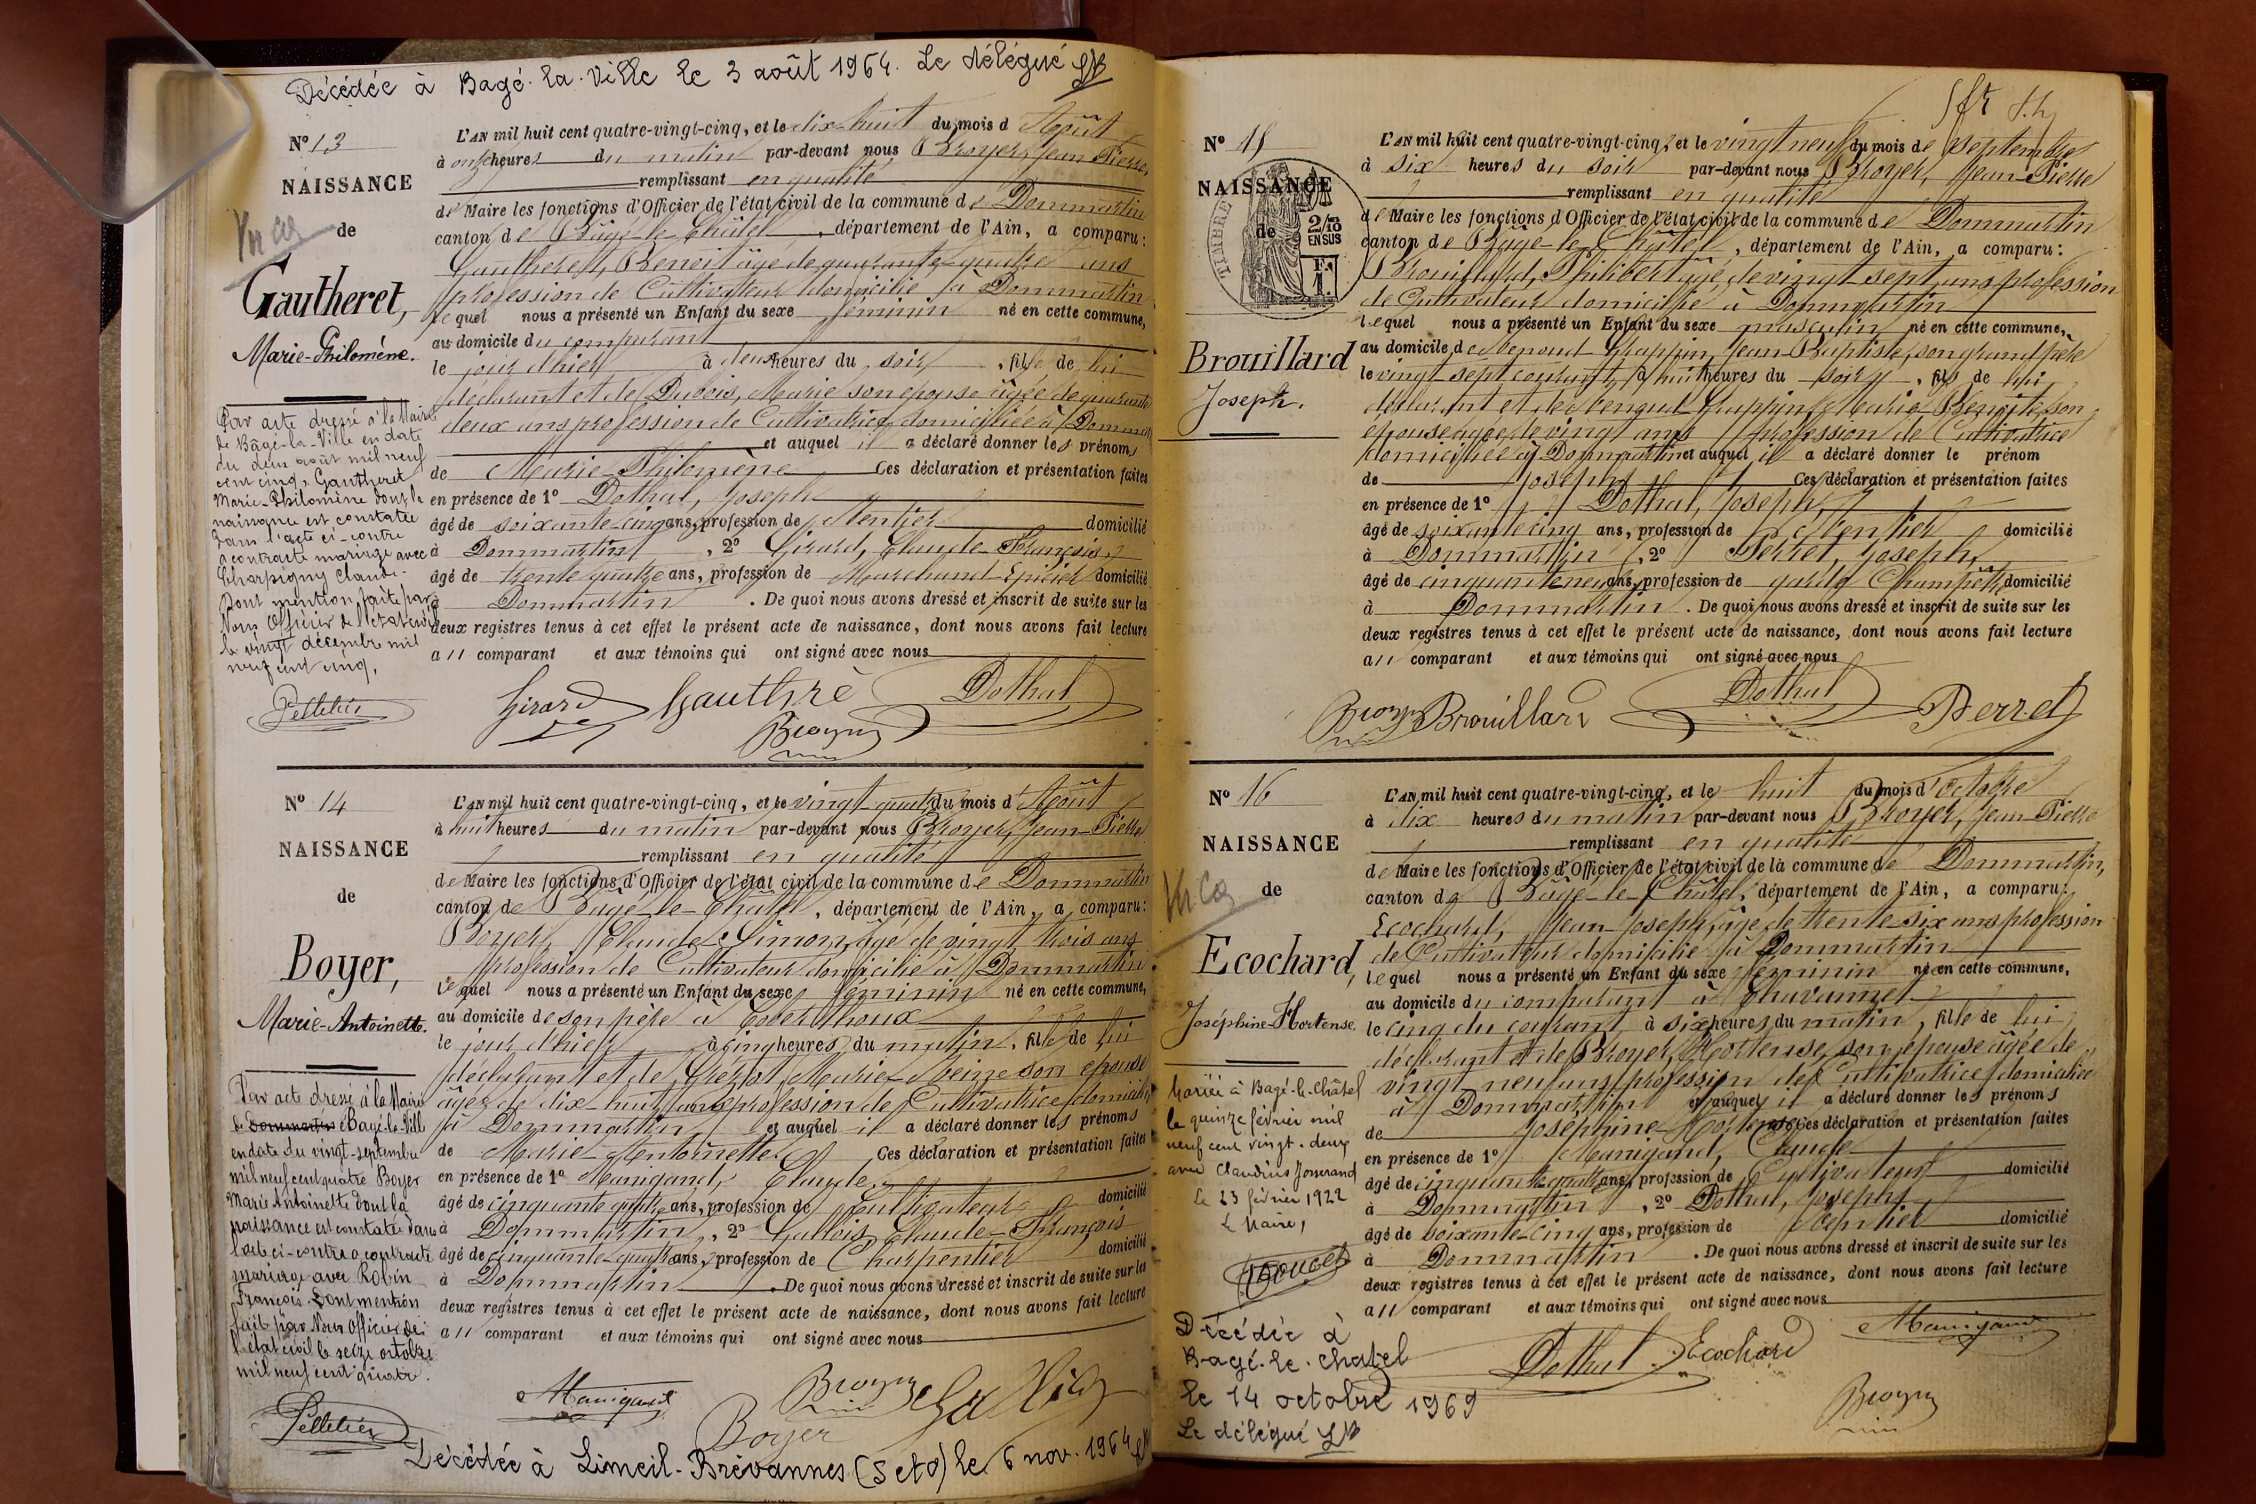 Décédée à Bagé-la-Ville le 3 août 1964. Le délégué
N° 13
NAISSANCE
de
Gautheret,
Marie-Philomène.
Par acte dressé à la Mairie
de Bâgé-la-Ville en date
du deux août mil neuf
cent cinq, Gautheret
Marie-Philomène dont la
naissance est constatée
dans l'acte ci-contre
a contracté mariage avec
Charpigny Claude.
Dont mention faite par
Nous Officier de l'état civil
le vingt décembre mil
neuf cent cinq.
Pelletier
L'AN mil huit cent quatre-vingt-cinq, et le dix-huit du mois d'Août
à onze heures du matin par-devant nous Broyer, Jean-Pierre,
remplissant en qualité
de Maire les fonctions d'Officier de l'état civil de la commune de Dommartin
canton de Bâgé-le-Châtel, département de l'Ain, a comparu:
Gautheret, Benoit âgé de quarante-quatre ans
profession de Cultivateur domicilié à Dommartin
lequel nous a présenté un Enfant du sexe féminin né en cette commune,
au domicile du comparant
le jour d'hier à deux heures du soir, fille de lui
déclarant et de Dubois, Marie son épouse âgée de quarante
deux ans profession de Cultivatrice domiciliée à Dommartin
et auquel il a déclaré donner les prénoms
de Marie-Philomène Ces déclaration et présentation faites
en présence de 1° Dothal, Joseph
âgé de soixante-cinq ans, profession de Rentier domicilié
à Dommartin, 2° Girard, Claude-François
âgé de trente quatre ans, profession de Marchand-Epicier domicilié
à Dommartin. De quoi nous avons dressé et inscrit de suite sur les
deux registres tenus à cet effet le présent acte de naissance, dont nous avons fait lecture
au comparant et aux témoins qui ont signé avec nous
Girard Gauthrè Dothal
Broyer
N° 14
NAISSANCE
de
Boyer,
Marie-Antoinette.
Par acte dressé à la Mairie
de Dommartin à Bagé-la-Ville
en date du vingt-septembre
mil neuf cent quatre Boyer
Marie Antoinette dont la
naissance est constatée dans
l'acte ci-contre a contracté
mariage avec Robin
François. Dont mention
faite par Nous Officier de
l'état civil le seize octobre
mil neuf cent quatre.
Pelletier
L'AN mil huit cent quatre-vingt-cinq, et le vingt-quatre du mois d'Août
à huit heures du matin par-devant nous Broyer, Jean-Pierre
remplissant en qualité
de Maire les fonctions d'Officier de l'état civil de la commune de Dommartin
canton de Bâgé-le-Châtel, département de l'Ain, a comparu:
Boyer, Claude-Simon, âgé de vingt trois ans
profession de Cultivateur domicilié à Dommartin
lequel nous a présenté un Enfant du sexe féminin né en cette commune,
au domicile de son père à
le jour d'hier à cinq heures du matin, fille de lui
déclarant et de Marie-Reine son épouse
âgée de dix-huit ans profession de Cultivatrice domiciliée
à Dommartin et auquel il a déclaré donner les prénoms
de Marie-Antoinette. Ces déclaration et présentation faites
en présence de 1° Manigand, Claude
âgé de cinquante quatre ans, profession de Cultivateur domicilié
à Dommartin, 2° Claude-François
âgé de cinquante-quatre ans, profession de Charpentier domicilié
à Dommartin. De quoi nous avons dressé et inscrit de suite sur les
deux registres tenus à cet effet le présent acte de naissance, dont nous avons fait lecture
au comparant et aux témoins qui ont signé avec nous
Manigand Broyer
Boyer
Décédée à Limeil-Brévannes (S et O) le 6 nov. 1964
N° 15
NAISSANCE
de
TIMBRE
2/10
EN SUS
F.
1.
Brouillard
Joseph.
L'AN mil huit cent quatre-vingt-cinq, et le vingt neuf du mois de septembre
à six heures du soir par-devant nous Broyer, Jean-Pierre
remplissant en qualité
de Maire les fonctions d'Officier de l'état civil de la commune de Dommartin
canton de Bâgé-le-Châtel, département de l'Ain, a comparu:
Brouillard, Philibert âgé de vingt-sept ans profession
de Cultivateur domicilié à Dommartin
lequel nous a présenté un Enfant du sexe masculin né en cette commune,
au domicile de Jean-Baptiste, son grand père
le vingt-sept courant, à huit heures du soir, fils de lui
déclarant et de Marie-Benoite son
épouse âgée de vingt ans profession de Cultivatrice
domiciliée à Dommartin et auquel il a déclaré donner le prénom
de Joseph Ces déclaration et présentation faites
en présence de 1° Dothal, Joseph,
âgé de soixante cinq ans, profession de Rentier domicilié
à Dommartin, 2° Perret, Joseph,
âgé de cinquante neuf ans, profession de garde Champêtre, domicilié
à Dommartin. De quoi nous avons dressé et inscrit de suite sur les
deux registres tenus à cet effet le présent acte de naissance, dont nous avons fait lecture
au comparant et aux témoins qui ont signé avec nous
Broyer Brouillard Dothal Perret
N° 16
NAISSANCE
de
Ecochard,
Joséphine-Hortense.
Mariée à Bagé-le-Châtel
le quinze février mil
neuf cent vingt-deux
avec Claudius Josserand
Le 23 février 1922
Le Maire,
Décédée à
Bagé-le-Chatel
le 14 octobre 1969
Le délégué
L'AN mil huit cent quatre-vingt-cinq, et le huit du mois d'octobre
à dix heures du matin par-devant nous Broyer, Jean-Pierre
remplissant en qualité
de Maire les fonctions d'Officier de l'état civil de la commune de Dommartin,
canton de Bâgé-le-Châtel, département de l'Ain, a comparu:
Ecochard, Jean-Joseph, âgé de trente-six ans profession
de Cultivateur domicilié à Dommartin
lequel nous a présenté un Enfant du sexe féminin né en cette commune,
au domicile du comparant à Chavannes
le cinq du courant à six heures du matin, fille de lui
déclarant et de Broyer, Hortense, son épouse âgée de
vingt-neuf ans profession de Cultivatrice domiciliée
à Dommartin et auquel il a déclaré donner les prénoms
de Joséphine-Hortense Ces déclaration et présentation faites
en présence de 1° Manigand, Claude
âgé de cinquante quatre ans, profession de Cultivateur domicilié
à Dommartin, 2° Dothal, Joseph,
âgé de soixante-cinq ans, profession de Rentier domicilié
à Dommartin. De quoi nous avons dressé et inscrit de suite sur les
deux registres tenus à cet effet le présent acte de naissance, dont nous avons fait lecture
au comparant et aux témoins qui ont signé avec nous
Manigand
Dothal Ecochard
Broyer